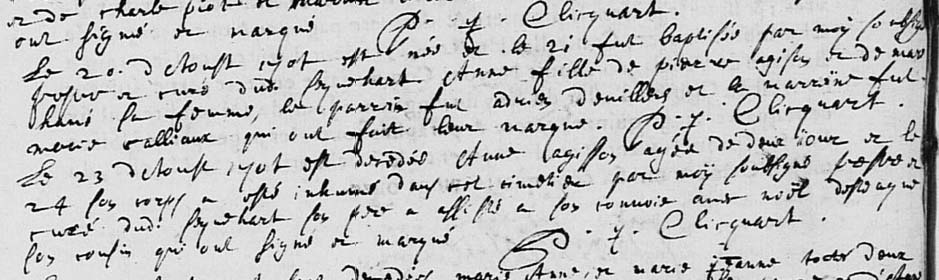 et de charle piot et
ont signé et marqué P. J. Clicquart.
Le 20. d'Aoust 1701 est née et le 21 fut baptisée par moy soubsig
prestre curé dud. Sequehart Anne fille de pierre agison et de mar
sa femme, le parrein fut adrien devillers et la marreine fut
marie calliaux qui ont fait leur marque. P. J. Clicquart.
Le 23 d'Aoust 1701 est decedée Anne agison agée de deux jour et le
24 son corps a esté inhumé dans cet cimetier par moy soubsigné prestre
curé dud. Sequehart son pere a assisté a son convoie avec noël
son cousin qui ont signé et marqué P. J. Clicquart.
marie Anne, et marie jeanne toutes deux